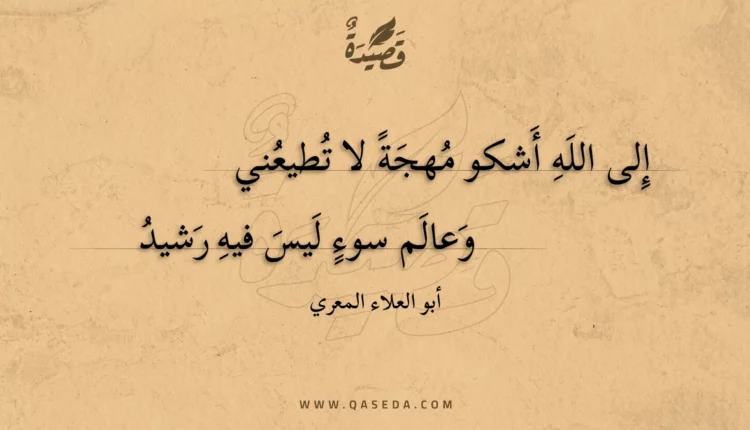 قَصِيدَةٌ
إِلى اللَهِ أَشكو مُهجَةً لا تُطيعُني
وَعالَم سوءٍ لَيسَ فيهِ رَشيدُ
أبو العلاء المعري
WWW.QASEDA.COM